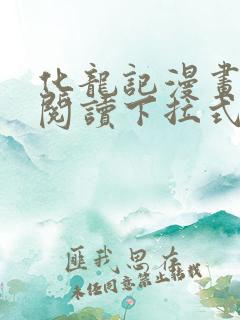 化龍記漫畫
閱讀下拉式
匪我思存
未任同意禁止轉載